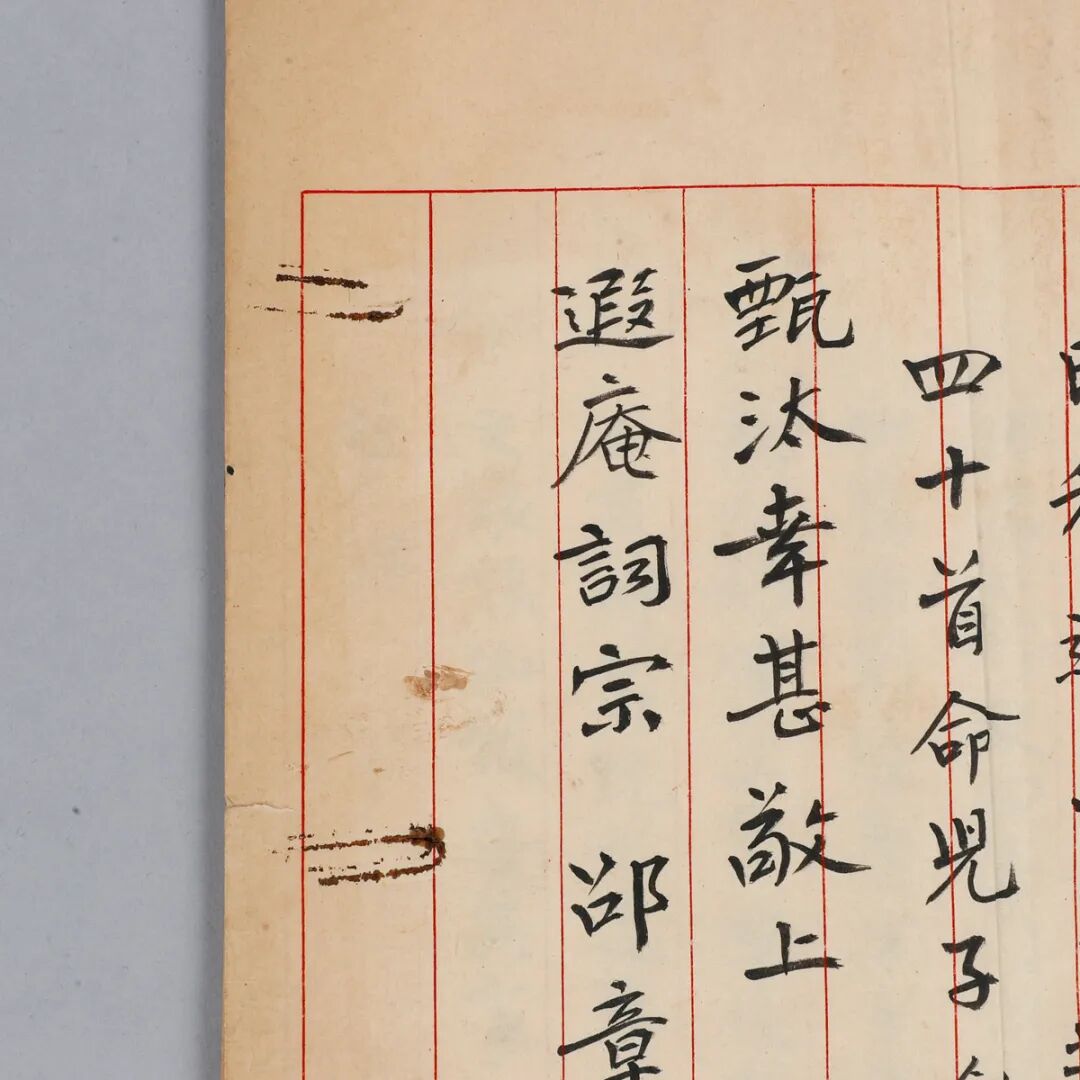 四十首命児子
甄汰幸甚敬上
遐庵詞宗 邵章